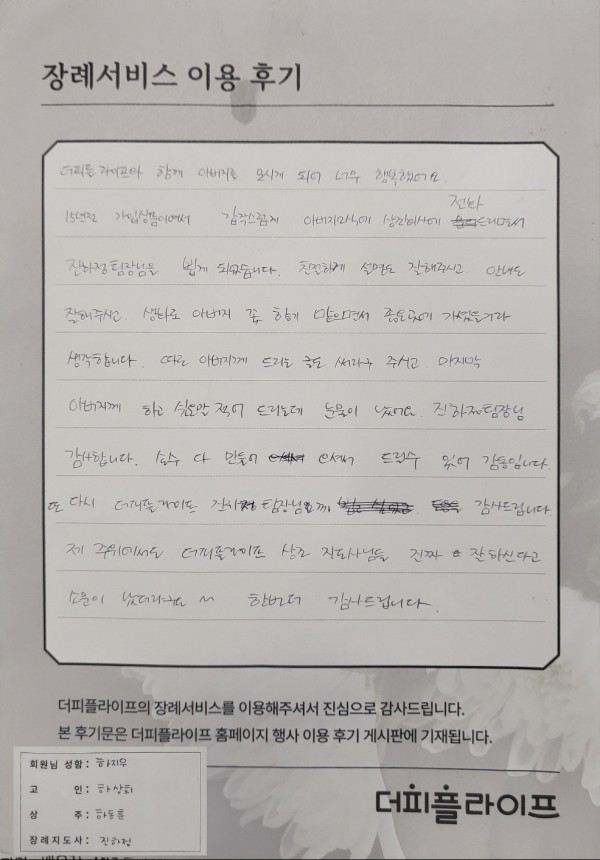 장례서비스 이용 후기
더피플라이프와 함께 아버지를 모시게 되어 너무 행복했어요.
15년전 가입상품이어서 갑작스럽게 상조회사에 전화드리면서
진하정팀장님을 뵙게 되었습니다. 친절하게 설명도 잘해주시고. 안내도
잘해주시고. 생화로 아버지 꽃 함께 맡으면서 좋은곳에 가셨을거라
생각합니다. 따로 아버지께 드리는 글도 써라구 주시고. 마지막
아버지께 하고 싶은말 적어 드리는데 눈물이 났어요. 진하정팀장님
감사합니다. 손수 다 만들어 드릴수 있어 감동입니다.
또 다시 더피플라이프 진하정팀장님께 감사드립니다.
제 주위에서도 더피플라이프 상조 지도사님들 진짜 잘하신다고
소문이 났더라구요 ~ 한번더 감사드립니다.
더피플라이프의 장례서비스를 이용해주셔서 진심으로 감사드립니다.
본 후기문은 더피플라이프 홈페이지 행사 이용 후기 게시판에 기재됩니다.
회원님 성함 : 하지우
고 인 : 하상희
상 주 : 하동훈
장례지도사 : 진하정
더피플라이프